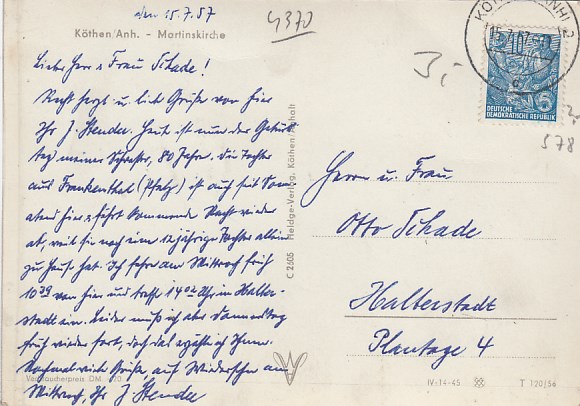 den 15.7.57
4370
Köthen/Anh. - Martinskirche
Liebe Herr u. Frau Schade!
Recht herzl. u. liebe Grüße von hier
Ihr J. Hendee. Heute ist nun der Geburts
tag meiner Schwester, 80 Jahre. Die Tochter
aus Frankenthal (Pfalz) ist auch seit Sonn
abend hier u. fährt kommende Nacht wieder
ab, weil sie noch eine 12jährige Tochter allein
zu Haus hat. Ich fahre am Mittwoch früh
10 39 von hier und treffe 14 02 Uhr in Halber-
stadt ein. Leider muß ich aber Donnerstag
früh wieder fort, doch das erzähle ich Ihnen.
Nochmal viele Grüße auf Wiedersehn am
Mittwoch, Ihr J. Hendee
Verbraucherpreis DM
C 2505 Heldge-Verlag, Köthen/Anhalt
KÖTHEN (ANH) 2
15.7.57
10
5
DEUTSCHE
DEMOKRATISCHE REPUBLIK
3,-
578
Herrn u. Frau
Otto Schade
Halberstadt
Plantage 4
IV-14-45
T 120/56